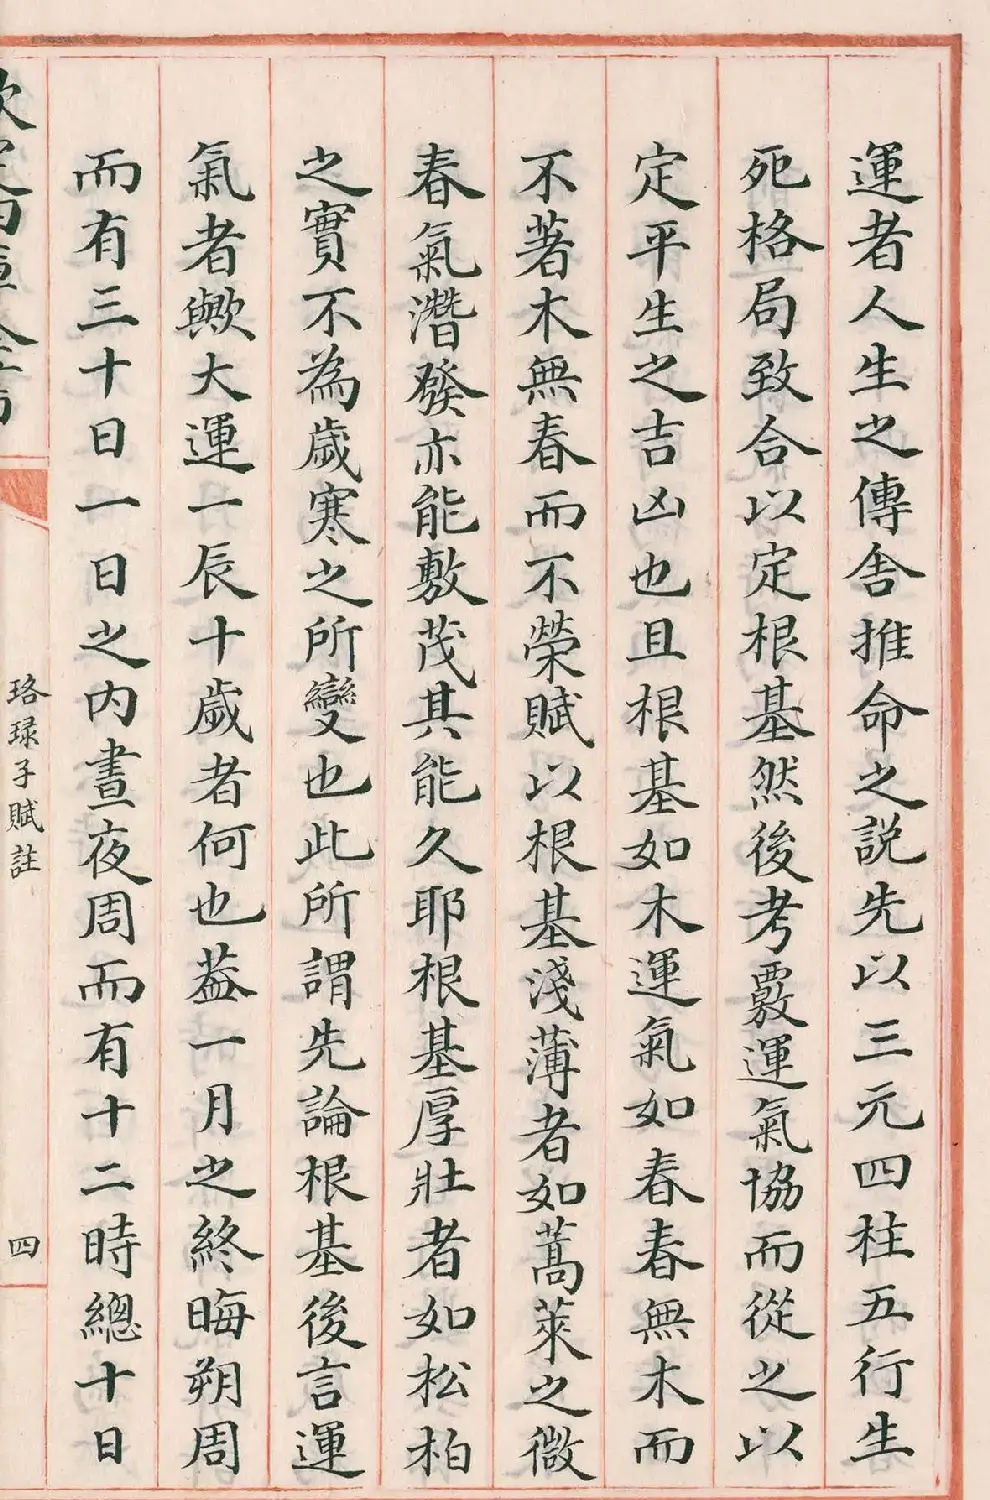 運者人生之傳舍推命之説先以三元四柱五行生
死格局致合以定根基然後考覈運氣協而從之以
定平生之吉凶也且根基如木運氣如春春無木而
不著木無春而不榮賦以根基淺薄者如蒿萊之微
春氣潛發亦能敷茂其能久耶根基厚壯者如松柏
之實不為歲寒之所變也此所謂先論根基後言運
氣者歟大運一辰十歲者何也葢一月之終晦朔周
而有三十日一日之内晝夜周而有十二時總十日
珞琭子賦註
四